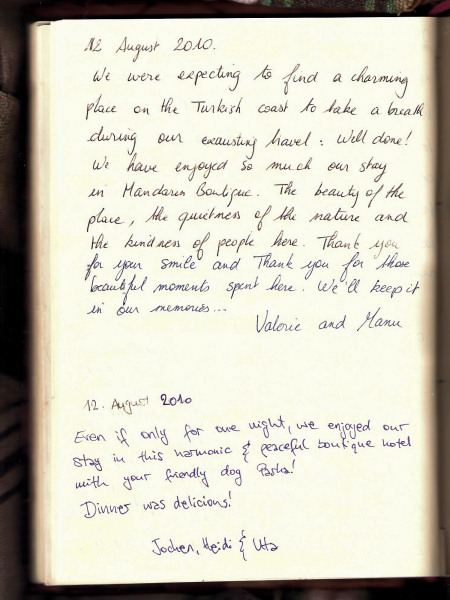 12 August 2010.
We were expecting to find a charming
place on the Turkish coast to take a breath
during our exausting travel : Well done!
We have enjoyed so much our stay
in Mandarin Boutique. The beauty of the
place, the quietness of the nature and
the kindness of people here. Thank you
for your smile and Thank you for those
beautiful moments spent here. We'll keep it
in our memories...
Valerie and Manu
12. August 2010
Even if only for one night, we enjoyed our
stay in this harmonic & peaceful boutique hotel
with your friendly dog Pasha!
Dinner was delicious!
Jochen, Heidi & Uta